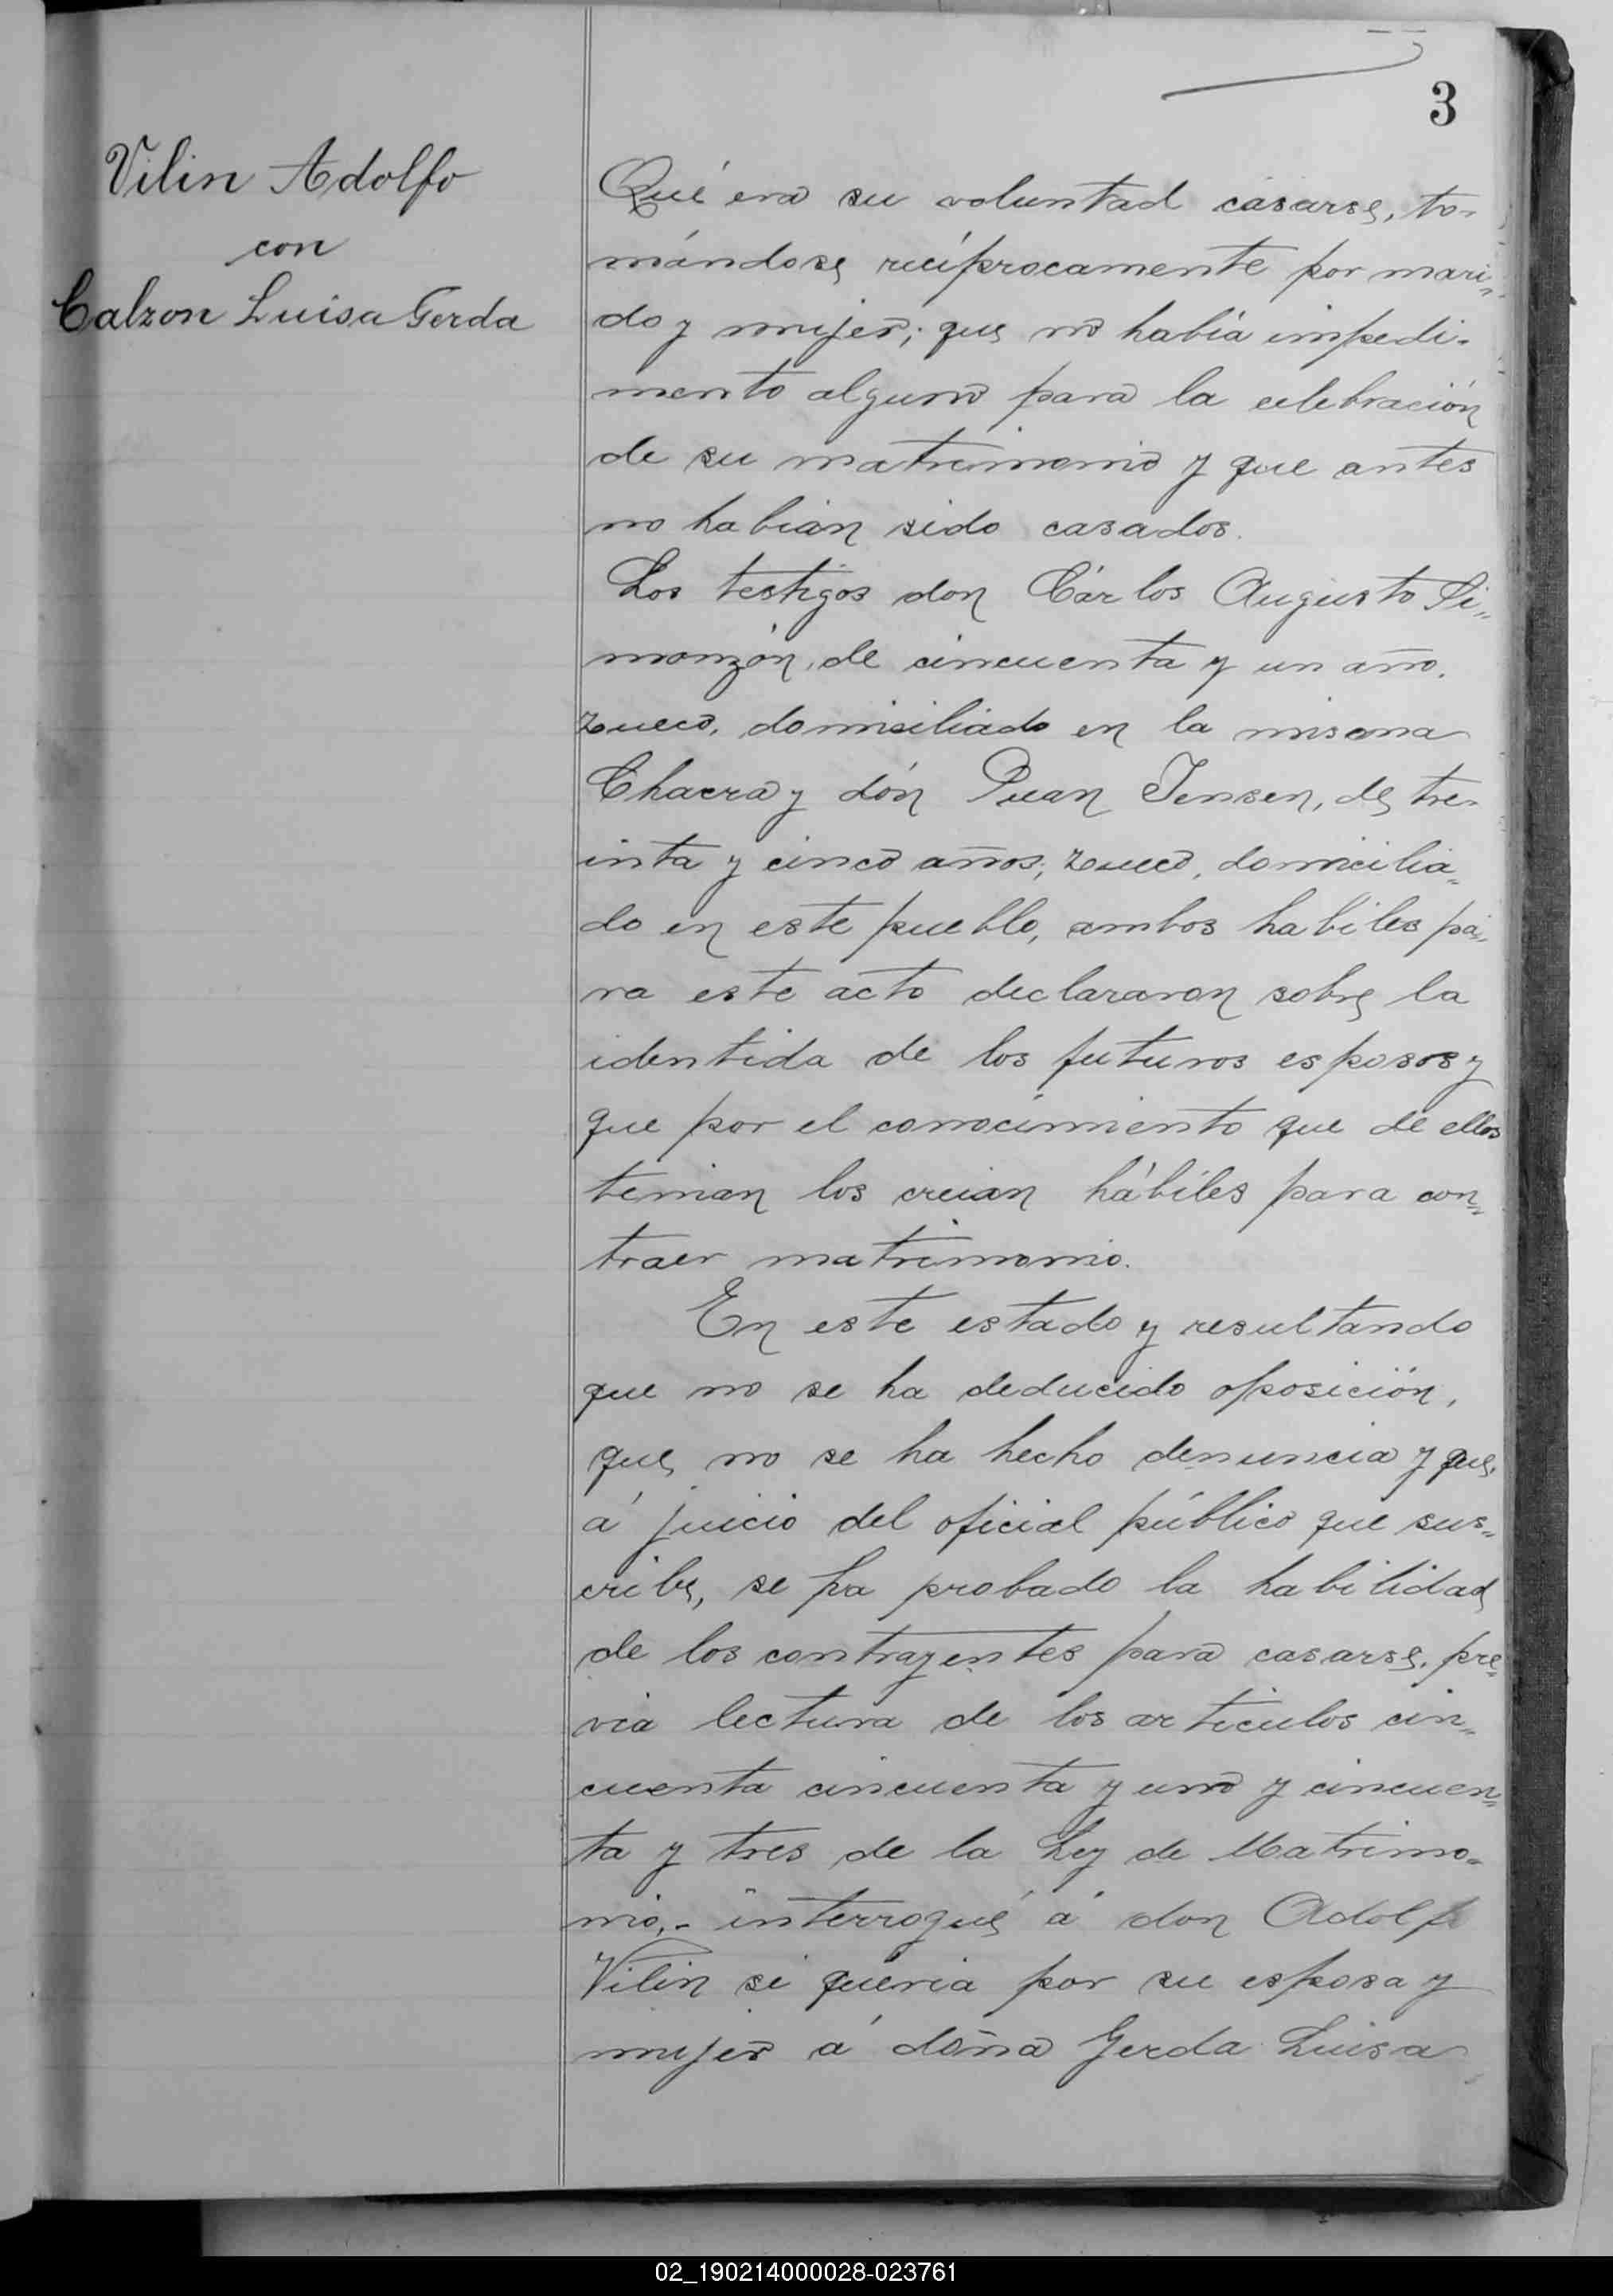 3
Vilin Adolfo
con
Calzon Luisa Gerda
Qué era su voluntad casarse, to-
mándose recíprocamente por mari-
do y mujer; que no había impedi-
mento alguno para la celebración
de su matrimonio y que antes
no habian sido casados.
Los testigos don Cárlos Augusto Si-
monzón, de cincuenta y un año.
zueco, domisiliado en la misma
Chacra y dón Juan Jensen, de tre-
inta y cinco años, zueco, domicilia-
do en este pueblo, ambos habiles pa-
ra este acto declararon sobre la
identida de los futuros esposos y
que por el conocimiento que de ellos
tenian los creian hábiles para con-
traer matrimonio.
En este estado y resultando
que no se ha deducido oposición,
que no se ha hecho denuncia y que
á juicio del oficial público que sus-
cribe, se ha probado la habilidad
de los contrayentes para casarse, pre-
via lectura de los articulos cin-
cuenta cincuenta y uno y cincuen-
ta y tres de la Ley de Matrimo-
nio,- interrogué á don Adolfo
Vilin si queria por su esposa y
mujer á doña Gerda Luisa
02_190214000028-023761